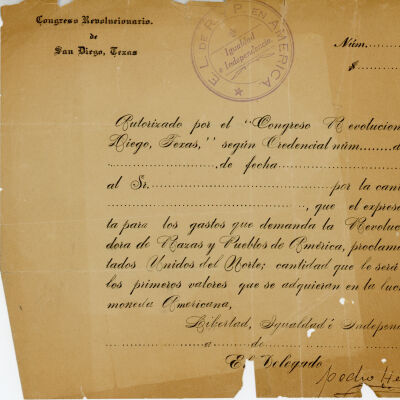 Congreso Revolucionario.
de
San Diego, Texas
E. L. DE R. Y P. EN AMERICA
Igualdad
é
Independencia.
Núm.
$
Autorizado por el "Congreso Revolucion
Diego, Texas," según Credencial núm. d
de fecha
al Sr. por la can
, que el expres
ta para los gastos que demanda la Revoluc
dora de Razas y Pueblos de América, proclam
tados Unidos del Norte; cantidad que le será
los primeros valores que se adquieran en la luc
moneda Americana,
Libertad, Igualdad é Indepen
a de
El Delegado
Pedro He